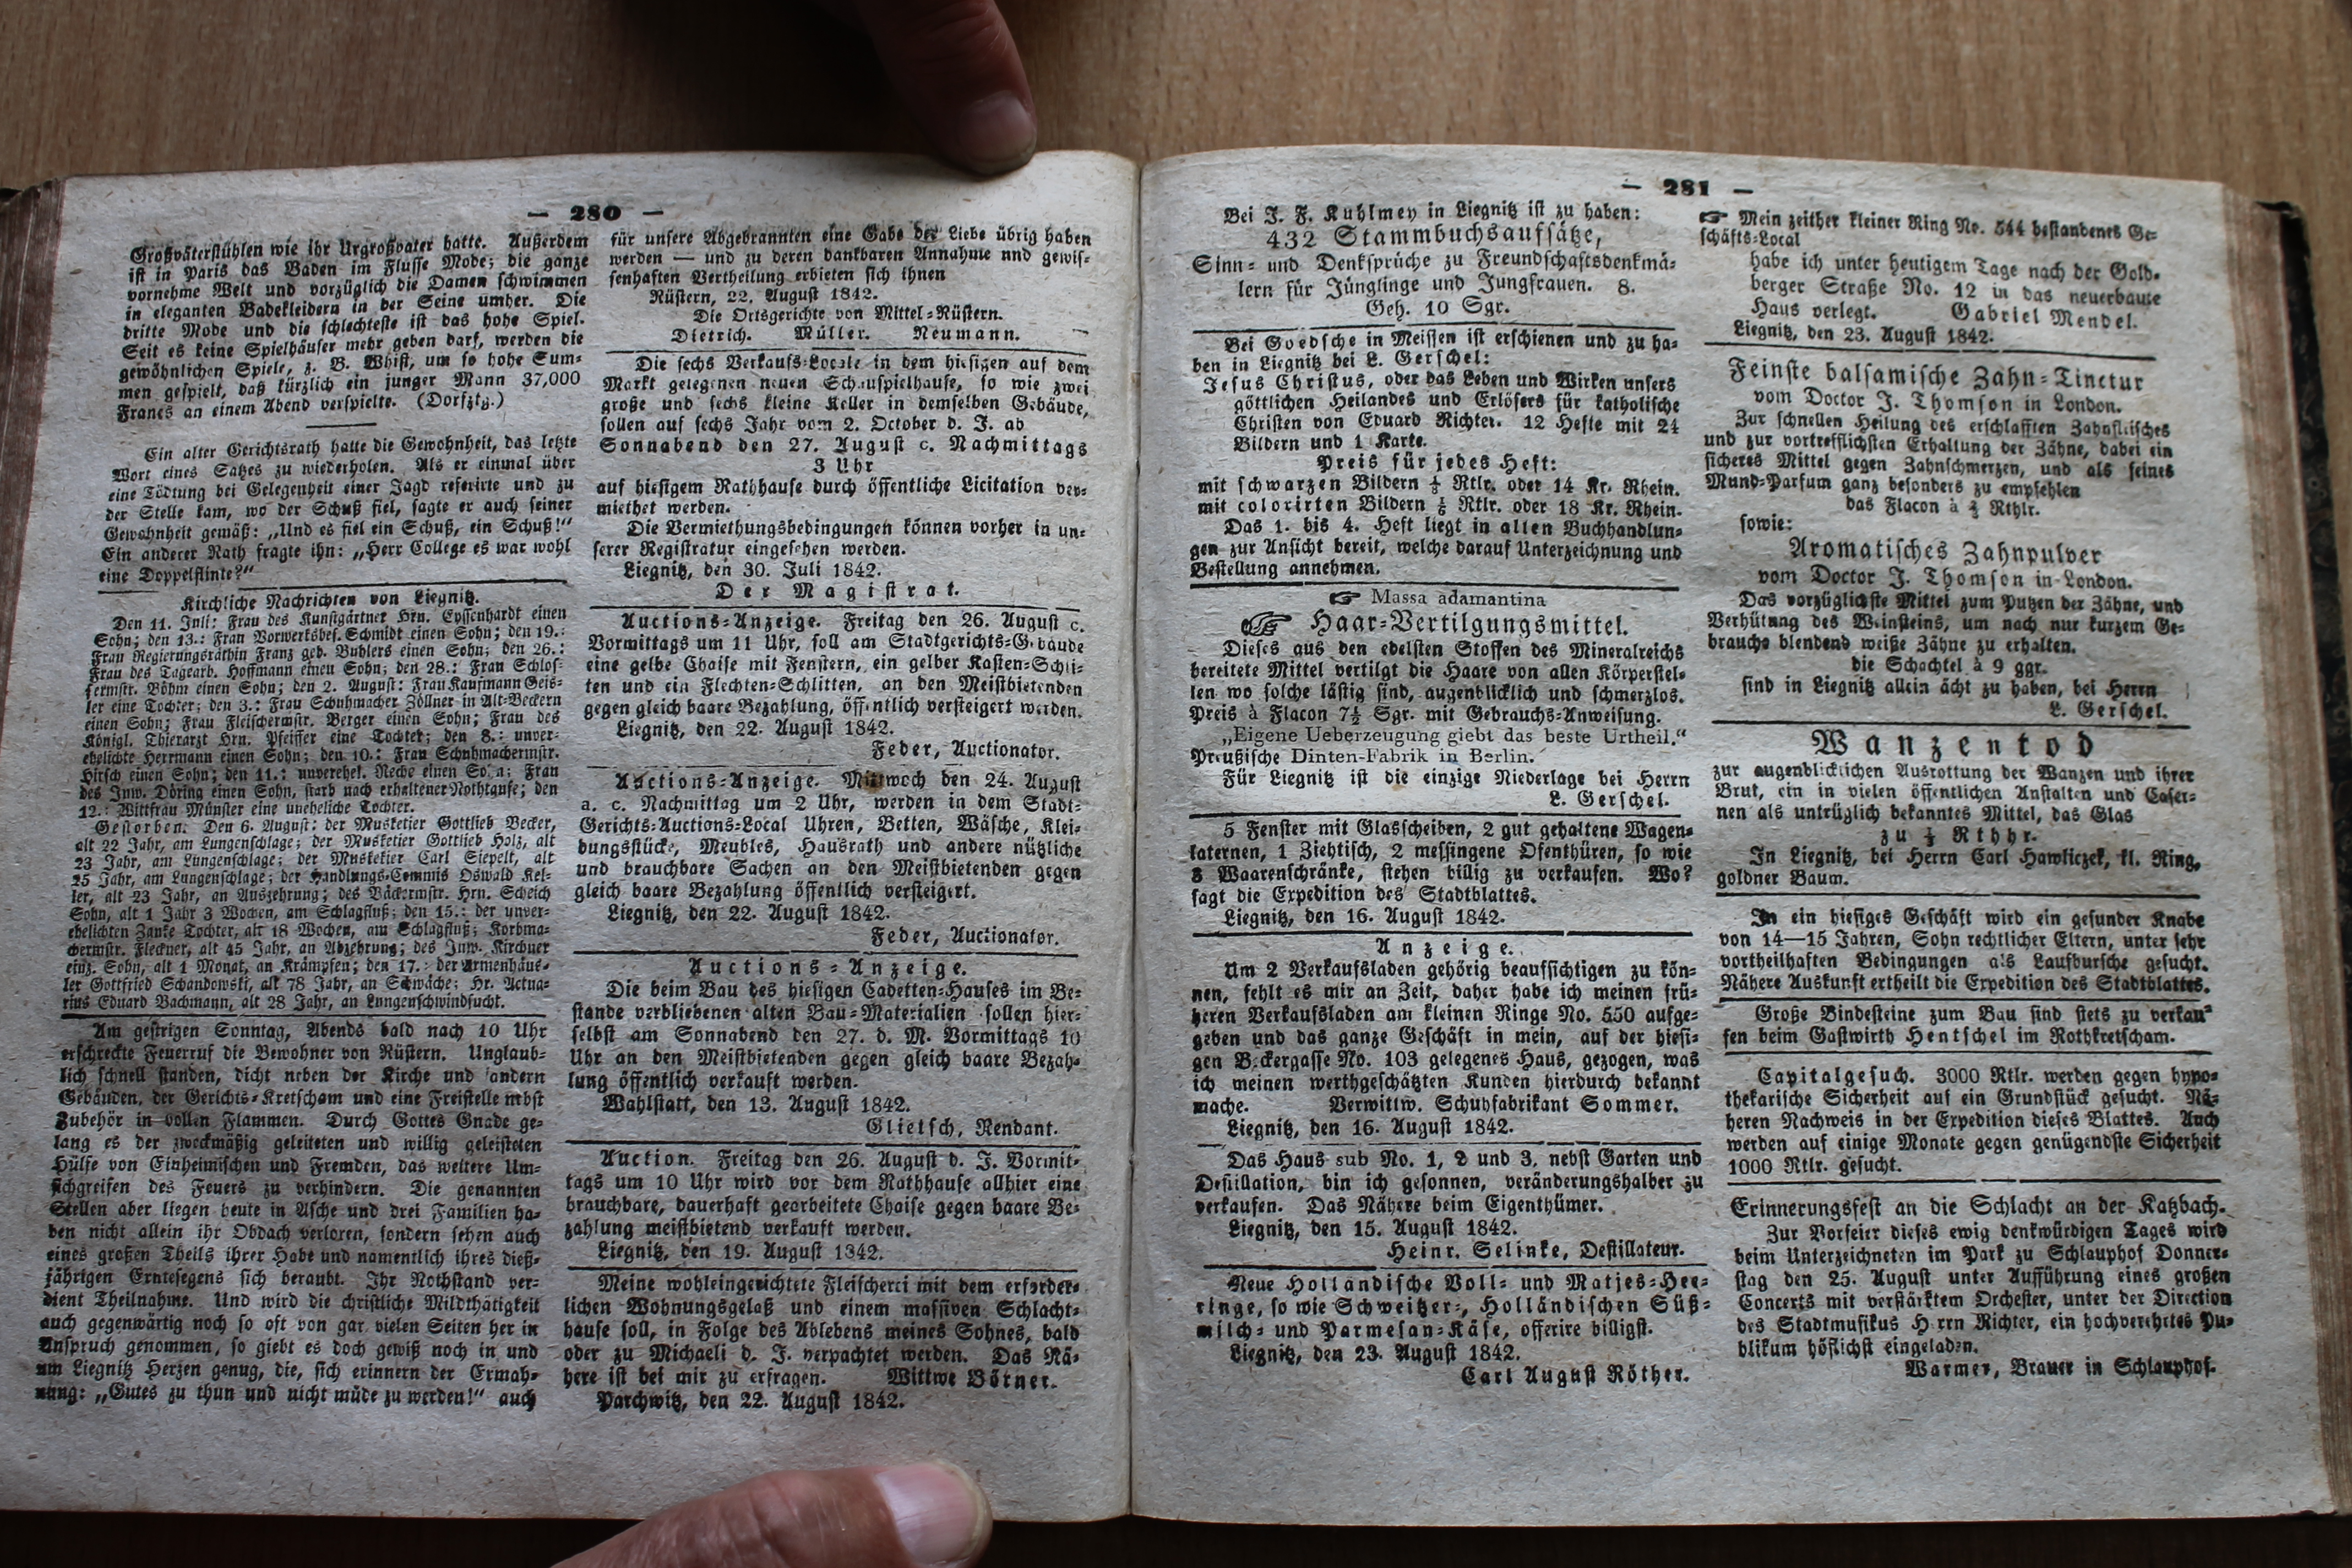 — 280 —
Großväterstühlen wie ihr Urgroßvater hatte. Außerdem
ist in Paris das Baden im Flusse Mode; die ganze
vornehme Welt und vorzüglich die Damen schwimmen
in eleganten Badekleidern in der Seine umher. Die
dritte Mode und die schlechteste ist das hohe Spiel.
Seit es keine Spielhäuser mehr geben darf, werden die
gewöhnlichen Spiele, z. B. Whist, um so hohe Sum-
men gespielt, daß kürzlich ein junger Mann 37,000
Francs an einem Abend verspielte. (Dorfztg.)
Ein alter Gerichtsrath hatte die Gewohnheit, das letzte
Wort eines Satzes zu wiederholen. Als er einmal über
eine Tödtung bei Gelegenheit einer Jagd referirte und zu
der Stelle kam, wo der Schuß fiel, sagte er auch seiner
Gewohnheit gemäß: „Und es fiel ein Schuß, ein Schuß!“
Ein anderer Rath fragte ihn: „Herr College es war wohl
eine Doppelflinte?“
Kirchliche Nachrichten von Liegnitz.
Den 11. Juli: Frau des Kunstgärtner Hrn. Eyssenhardt einen
Sohn; den 13.: Frau Vorwerksbes. Schmidt einen Sohn; den 19.:
Frau Regierungsräthin Franz geb. Buhlers einen Sohn; den 26.:
Frau des Tagearb. Hoffmann einen Sohn; den 28.: Frau Schlos-
sermstr. Böhm einen Sohn; den 2. August: Frau Kaufmann Geis-
ler eine Tochter; den 3.: Frau Schuhmacher Zöllner in Alt-Beckern
einen Sohn; Frau Fleischermstr. Berger einen Sohn; Frau des
Königl. Thierarzt Hrn. Pfeiffer eine Tochter; den 8.: unver-
ehelichte Herrmann einen Sohn; den 10.: Frau Schuhmachermstr.
Hirsch einen Sohn; den 11.: unverehel. Reche einen Sohn; Frau
des Inw. Döring einen Sohn, starb nach erhaltener Nothtaufe; den
12.: Wittfrau Münster eine uneheliche Tochter.
Gestorben. Den 6. August: der Musketier Gottlieb Becker,
alt 22 Jahr, am Lungenschlage; der Musketier Gottlieb Holz, alt
23 Jahr, am Lungenschlage; der Musketier Carl Siepelt, alt
25 Jahr, am Lungenschlage; der Handlungs-Commis Oswald Kel-
ler, alt 23 Jahr, an Auszehrung; des Bäckermstr. Hrn. Scheich
Sohn, alt 1 Jahr 3 Wochen, am Schlagfluß; den 15.: der unver-
ehelichten Zanke Tochter, alt 18 Wochen, am Schlagfluß; Korbma-
chermstr. Fleckner, alt 45 Jahr, an Abzehrung; des Inw. Kirchner
einz. Sohn, alt 1 Monat, an Krämpfen; den 17.: der Armenhäus-
ler Gottfried Schandowski, alt 78 Jahr, an Schwäche; Hr. Actua-
rius Eduard Bachmann, alt 28 Jahr, an Lungenschwindsucht.
Am gestrigen Sonntag, Abends bald nach 10 Uhr
erschreckte Feuerruf die Bewohner von Rüstern. Unglaub-
lich schnell standen, dicht neben der Kirche und andern
Gebäuden, der Gerichts-Kretscham und eine Freistelle nebst
Zubehör in vollen Flammen. Durch Gottes Gnade ge-
lang es der zweckmäßig geleiteten und willig geleisteten
Hülfe von Einheimischen und Fremden, das weitere Um-
sichgreifen des Feuers zu verhindern. Die genannten
Stellen aber liegen heute in Asche und drei Familien ha-
ben nicht allein ihr Obdach verloren, sondern sehen auch
eines großen Theils ihrer Habe und namentlich ihres dieß-
jährigen Erntesegens sich beraubt. Ihr Nothstand ver-
dient Theilnahme. Und wird die christliche Mildthätigkeit
auch gegenwärtig noch so oft von gar vielen Seiten her in
Anspruch genommen, so giebt es doch gewiß noch in und
um Liegnitz Herzen genug, die, sich erinnern der Ermah-
nung: „Gutes zu thun und nicht müde zu werden!“ auch
für unsere Abgebrannten eine Gabe der Liebe übrig haben
werden — und zu deren dankbaren Annahme nnd gewis-
senhaften Vertheilung erbieten sich ihnen
Rüstern, 22. August 1842.
Die Ortsgerichte von Mittel-Rüstern.
Dietrich. Müller. Neumann.
Die sechs Verkaufs-Locale in dem hiesigen auf dem
Markt gelegenen neuen Schauspielhause, so wie zwei
große und sechs kleine Keller in demselben Gebäude,
sollen auf sechs Jahr vom 2. October d. J. ab
Sonnabend den 27. August c. Nachmittags
3 Uhr
auf hiesigem Rathhause durch öffentliche Licitation ver-
miethet werden.
Die Vermiethungsbedingungen können vorher in un-
serer Registratur eingesehen werden.
Liegnitz, den 30. Juli 1842.
Der Magistrat.
Auctions-Anzeige. Freitag den 26. August c.
Vormittags um 11 Uhr, soll am Stadtgerichts-Gebäude
eine gelbe Chaise mit Fenstern, ein gelber Kasten-Schlit-
ten und ein Flechten-Schlitten, an den Meistbietenden
gegen gleich baare Bezahlung, öffentlich versteigert werden.
Liegnitz, den 22. August 1842.
Feder, Auctionator.
Auctions-Anzeige. Mittwoch den 24. August
a. c. Nachmittag um 2 Uhr, werden in dem Stadt-
Gerichts-Auctions-Local Uhren, Betten, Wäsche, Klei-
dungsstücke, Meubles, Hausrath und andere nützliche
und brauchbare Sachen an den Meistbietenden gegen
gleich baare Bezahlung öffentlich versteigert.
Liegnitz, den 22. August 1842.
Feder, Auctionator.
Auctions-Anzeige.
Die beim Bau des hiesigen Cadetten-Hauses im Be-
stande verbliebenen alten Bau-Materialien sollen hier-
selbst am Sonnabend den 27. d. M. Vormittags 10
Uhr an den Meistbietenden gegen gleich baare Bezah-
lung öffentlich verkauft werden.
Wahlstatt, den 13. August 1842.
Glietsch, Rendant.
Auction. Freitag den 26. August d. J. Vormit-
tags um 10 Uhr wird vor dem Rathhause allhier eine
brauchbare, dauerhaft gearbeitete Chaise gegen baare Be-
zahlung meistbietend verkauft werden.
Liegnitz, den 19. August 1842.
Meine wohleingerichtete Fleischerei mit dem erforder-
lichen Wohnungsgelaß und einem massiven Schlacht-
hause soll, in Folge des Ablebens meines Sohnes, bald
oder zu Michaeli d. J. verpachtet werden. Das Nä-
here ist bei mir zu erfragen. Wittwe Bötner.
Parchwitz, den 22. August 1842.
— 281 —
Bei J. F. Kuhlmey in Liegnitz ist zu haben:
432 Stammbuchsaufsätze,
Sinn- und Denksprüche zu Freundschaftsdenkmä-
lern für Jünglinge und Jungfrauen. 8.
Geh. 10 Sgr.
Bei Goedsche in Meissen ist erschienen und zu ha-
ben in Liegnitz bei L. Gerschel:
Jesus Christus, oder das Leben und Wirken unsers
göttlichen Heilandes und Erlösers für katholische
Christen von Eduard Richter. 12 Hefte mit 24
Bildern und 1 Karte.
Preis für jedes Heft:
mit schwarzen Bildern Rtlr. oder 14 Kr. Rhein.
mit colorirten Bildern Rtlr. oder 18 Kr. Rhein.
Das 1. bis 4. Heft liegt in allen Buchhandlun-
gen zur Ansicht bereit, welche darauf Unterzeichnung und
Bestellung annehmen.
☞ Massa adamantina
☞ Haar-Vertilgungsmittel.
Dieses aus den edelsten Stoffen des Mineralreichs
bereitete Mittel vertilgt die Haare von allen Körperstel-
len wo solche lästig sind, augenblicklich und schmerzlos.
Preis à Flacon 7½ Sgr. mit Gebrauchs-Anweisung.
„Eigene Ueberzeugung giebt das beste Urtheil.“
Preußische Dinten-Fabrik in Berlin.
Für Liegnitz ist die einzige Niederlage bei Herrn
L. Gerschel.
5 Fenster mit Glasscheiben, 2 gut gehaltene Wagen-
laternen, 1 Ziehtisch, 2 messingene Ofenthüren, so wie
3 Waarenschränke, stehen billig zu verkaufen. Wo?
sagt die Expedition des Stadtblattes.
Liegnitz, den 16. August 1842.
Anzeige.
Um 2 Verkaufsladen gehörig beaufsichtigen zu kön-
nen, fehlt es mir an Zeit, daher habe ich meinen frü-
heren Verkaufsladen am kleinen Ringe No. 550 aufge-
geben und das ganze Geschäft in mein, auf der hiesi-
gen Beckergasse No. 103 gelegenes Haus, gezogen, was
ich meinen werthgeschätzten Kunden hierdurch bekannt
mache. Verwittw. Schuhfabrikant Sommer.
Liegnitz, den 16. August 1842.
Das Haus sub No. 1, 2 und 3, nebst Garten und
Destillation, bin ich gesonnen, veränderungshalber zu
verkaufen. Das Nähere beim Eigenthümer.
Liegnitz, den 15. August 1842.
Heinr. Selinke, Destillateur.
Neue Holländische Voll- und Matjes-Hee-
ringe, so wie Schweitzer-, Holländischen Süß-
milch- und Parmesan-Käse, offerire billigst.
Liegnitz, den 23. August 1842.
Carl August Röther.
☞ Mein zeither kleiner Ring No. 544 bestandenes Ge-
schäfts-Local
habe ich unter heutigem Tage nach der Gold-
berger Straße No. 12 in das neuerbaute
Haus verlegt. Gabriel Mendel.
Liegnitz, den 23. August 1842.
Feinste balsamische Zahn-Tinctur
vom Doctor J. Thomson in London.
Zur schnellen Heilung des erschlafften Zahnfleisches
und zur vortrefflichsten Erhaltung der Zähne, dabei ein
sicheres Mittel gegen Zahnschmerzen, und als feines
Mund-Parfum ganz besonders zu empfehlen
das Flacon à Rthlr.
sowie:
Aromatisches Zahnpulver
vom Doctor J. Thomson in London.
Das vorzüglichste Mittel zum Putzen der Zähne, und
Verhütung des Weinsteins, um nach nur kurzem Ge-
brauche blendend weiße Zähne zu erhalten.
die Schachtel à 9 ggr.
sind in Liegnitz allein ächt zu haben, bei Herrn
L. Gerschel.
Wanzentod
zur augenblicklichen Ausrottung der Wanzen und ihrer
Brut, ein in vielen öffentlichen Anstalten und Caser-
nen als untrüglich bekanntes Mittel, das Glas
zu Rthhr.
In Liegnitz, bei Herrn Carl Hawliczek, kl. Ring,
goldner Baum.
In ein hiesiges Geschäft wird ein gesunder Knabe
von 14—15 Jahren, Sohn rechtlicher Eltern, unter sehr
vortheilhaften Bedingungen als Laufbursche gesucht.
Nähere Auskunft ertheilt die Expedition des Stadtblattes.
Große Bindesteine zum Bau sind stets zu verkau-
fen beim Gastwirth Hentschel im Rothkretscham.
Capitalgesuch. 3000 Rtlr. werden gegen hypo-
thekarische Sicherheit auf ein Grundstück gesucht. Nä-
heren Nachweis in der Expedition dieses Blattes. Auch
werden auf einige Monate gegen genügendste Sicherheit
1000 Rtlr. gesucht.
Erinnerungsfest an die Schlacht an der Katzbach.
Zur Vorfeier dieses ewig denkwürdigen Tages wird
beim Unterzeichneten im Park zu Schlauphof Donner-
stag den 25. August unter Aufführung eines großen
Concerts mit verstärktem Orchester, unter der Direction
des Stadtmusikus Herrn Richter, ein hochverehrtes Pu-
blikum höflichst eingeladen.
Warmer, Brauer in Schlauphof.